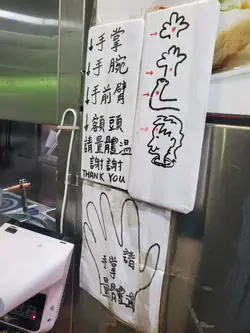 ↓手掌
↓手腕
↓手前臂
↓額頭
請量體溫
謝謝
THANK YOU
請
手掌
量